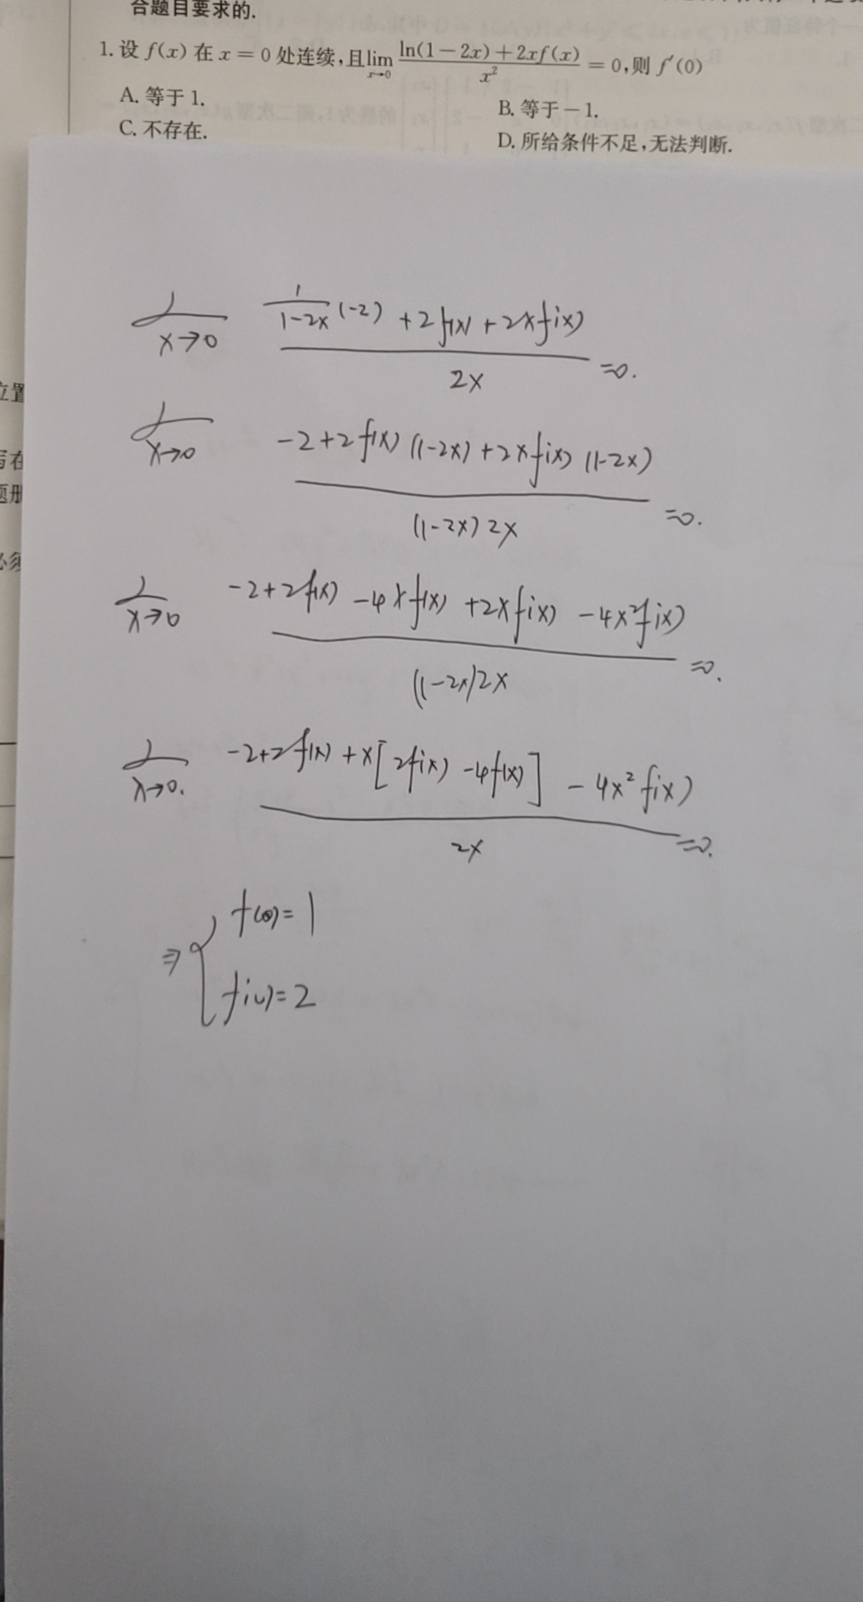 合题目要求的.
1. 设 f(x) 在 x = 0 处连续,且lim_{x→0} \frac{ln(1-2x)+2xf(x)}{x^2} = 0,则 f′(0)
A. 等于 1.
B. 等于-1.
C. 不存在.
D. 所给条件不足,无法判断.
x→0 \frac{\frac{1}{1-2x}(-2) + 2f(x) + 2xf'(x)}{2x} =0.
x→0 \frac{-2+2f(x)(1-2x)+2xf'(x)(1-2x)}{(1-2x)2x} =0.
x→0 \frac{-2+2f(x) -4xf(x) +2xf'(x) -4x^2f'(x)}{(1-2x)2x} =0.
x→0. \frac{-2+2f(x)+x[2f'(x) -4f(x)] -4x^2f'(x)}{2x} =0.
⇒ { f(0)=1
f'(0)=2
位置
写在
题册
必须